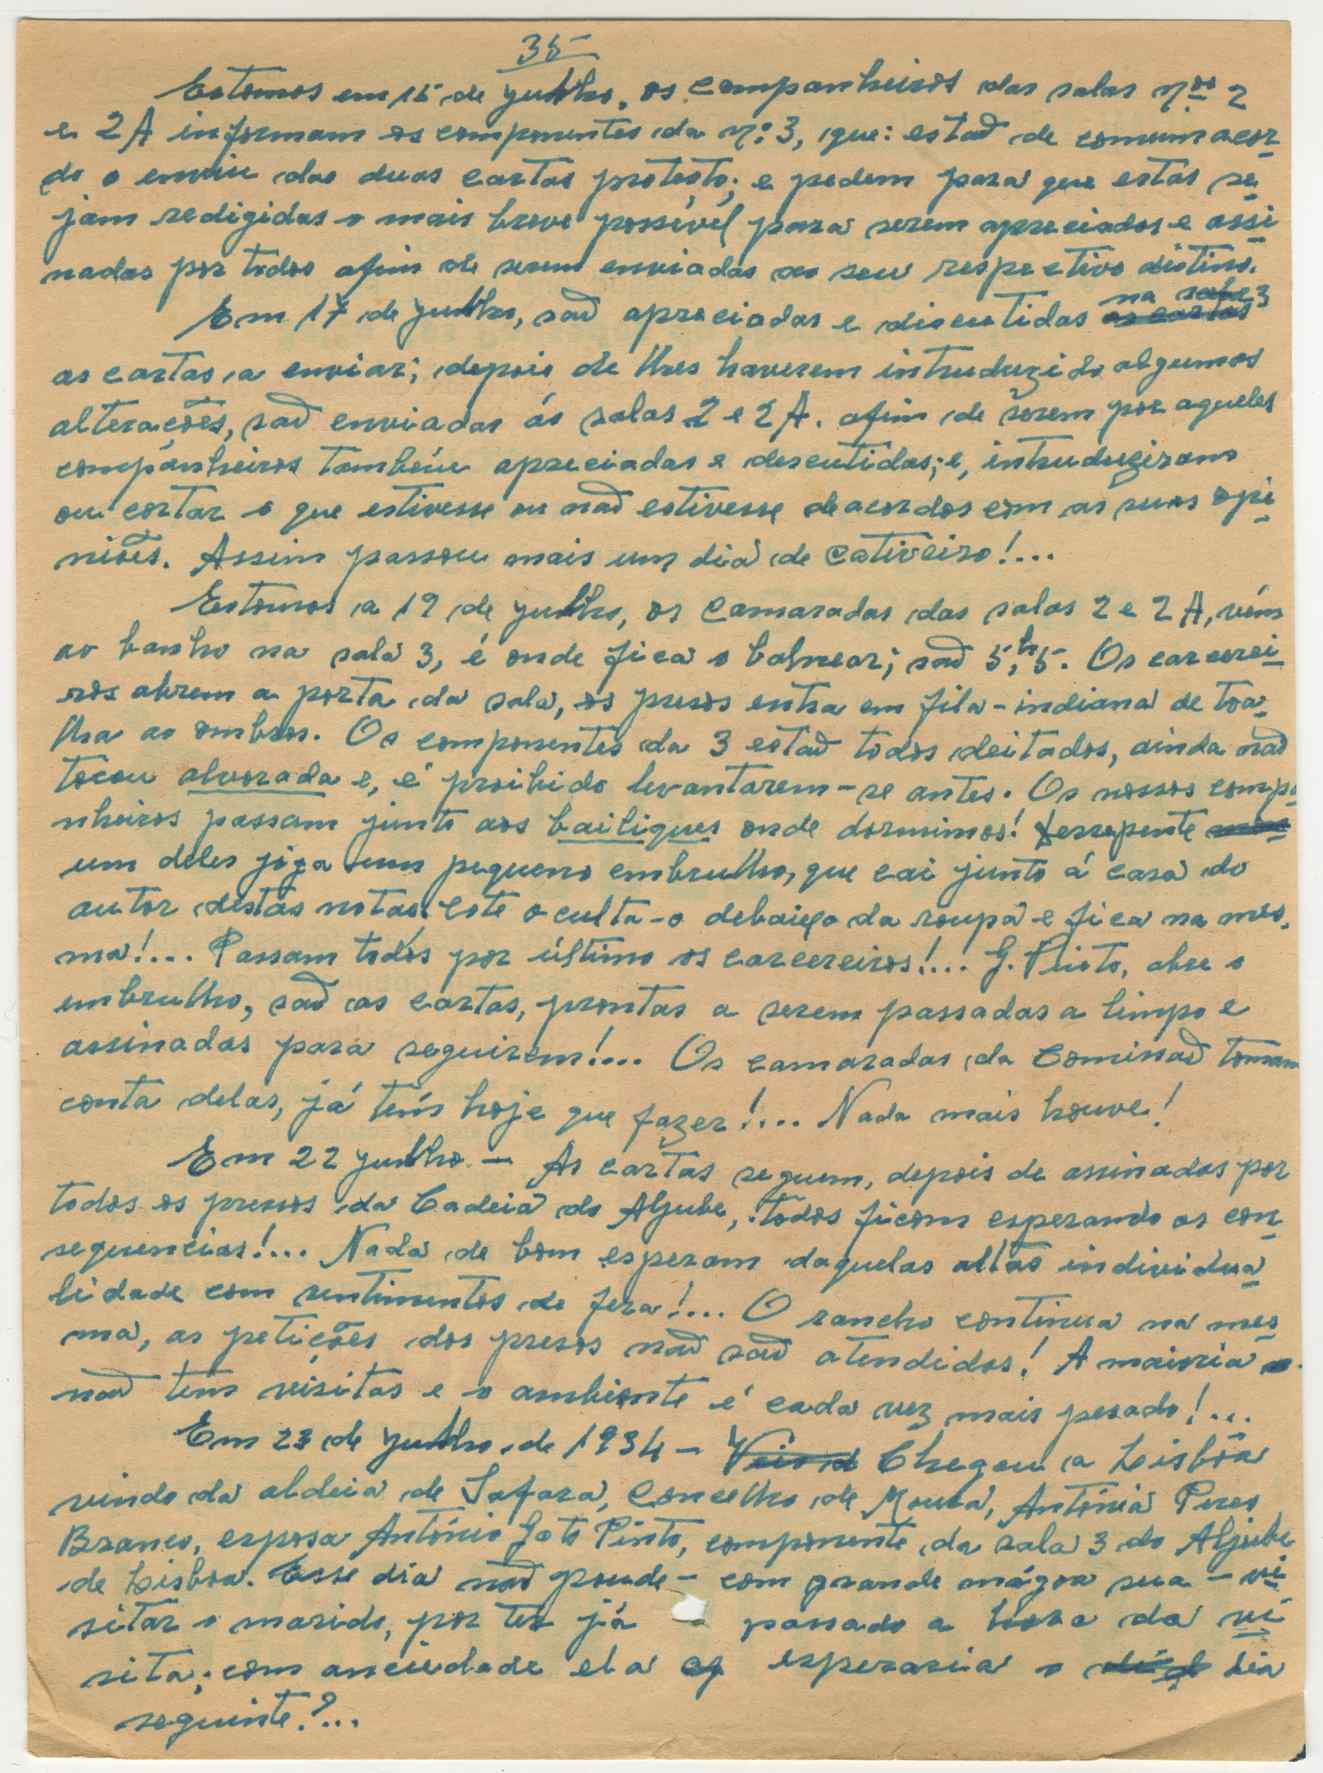 35
Estomos em 15 de julho, os companheiros das salas nºs 2
e 2A informam os componentes da nº 3, que: estaõ de comum acor-
do o enviu das duas cartas protesto; e pedem para que estas se-
jam redigidas o mais breve possível para serem apreciadas e assi-
nadas por todos afim de serem enviadas ao seu respectivo distino.
Em 17 de julho, saõ apreciadas e discutidas as cartas na sala 3
as cartas a enviar; depois de lhes haverem intruduzido algumas
alterações, saõ enviadas ás salas 2 e 2A. afim de serem por aqueles
companheiros tambéu apreciadas e descutidas; e, intruduziram
ou cortar o que estivesse ou naõ estivesse deacordos com as suas opi-
niões. Assim passou mais um dia de Cativeiro!...
Estomos a 19 de julho, os camaradas das salas 2 e 2A, vém
ao banho na sala 3, é onde fica o balnear; saõ 5,h5. Os carcerei-
ros abrem a porta da sala, os presos entra em fila-indiana de toa-
lha ao ombro. Os componentes da 3 estaõ todos deitados, ainda naõ
tocou alvorada e, é proibido levantarem-se antes. Os nossos compa-
nheiros passam junto aos bailiques onde dormimos! derrepente
um deles joga um pequeno embrulho, que cai junto á cara do
autor destas notas. Este oculta-o debaixo da roupa e fica na mes-
ma!... Passam todos por último os carcereiros!... G. Pinto, abre o
embrulho, saõ as cartas, prontas a serem passadas a limpo e
assinadas para seguirem!... Os camaradas da Comissaõ tomam
conta delas, já tem hoje que fazer!... Nada mais houve!
Em 22 julho - As cartas seguem, depois de assinadas por
todos os presos da Cadeia do Aljube, todos ficam esperando as con-
sequencias!... Nada de bom esperam daquelas altas individua-
lidade com sentimentos de fera!... O rancho continua na mes-
ma, as petições dos presos naõ saõ atendidos! A maioria
naõ tem visitas e o ambiente é cada vez mais pesado!...
Em 23 de julho de 1934 - Veio d Chegou a Lisbôa
vindo da aldeia de Safara, Concelho de Moura, Antónia Peres
Branco, esposa António Gato Pinto, componente da sala 3 do Aljube
de Lisboa. Esse dia naõ poude - com grande mágoa sua - vi-
sitar o marido, por ter já passado a hora da vi-
sita; com anciedade ela esperaria o dia
seguinte?...